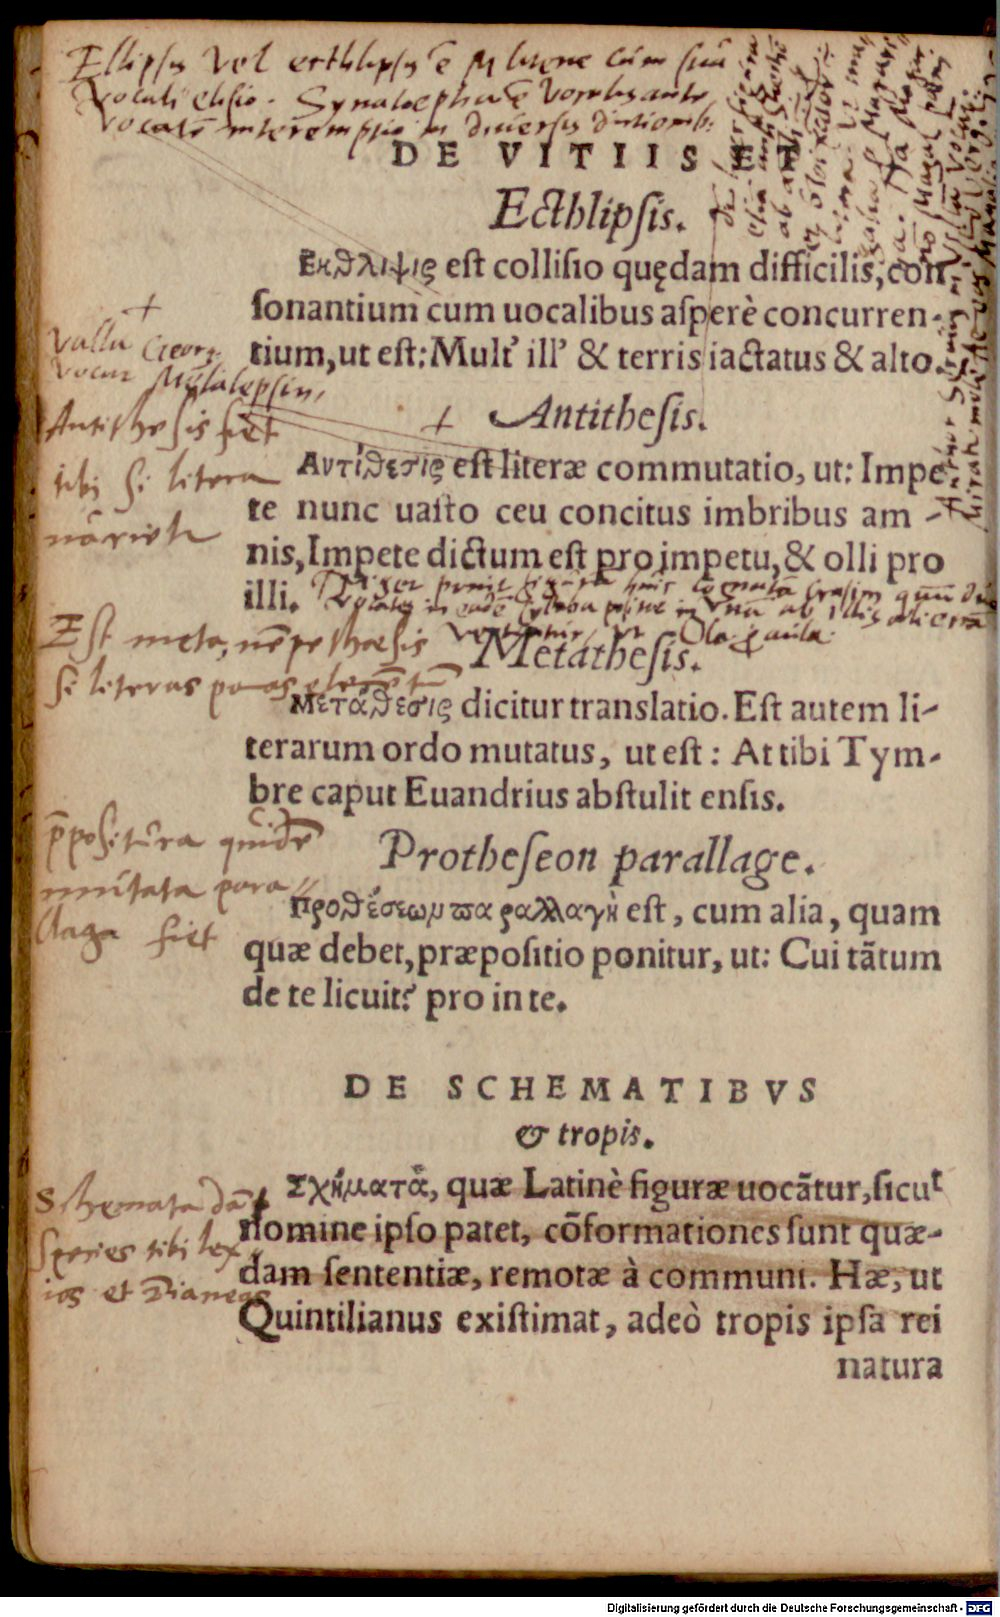 Ellipsis vel ecthlipsis ē M litere cum sua
vocali elisio. Synaloepha ē vocalis ante
vocalē interemptio in diuersis dictionib:
DE VITIIS ET
Ecthlipsis.
Ἔκθλιψις est collisio quędam difficilis, con
sonantium cum uocalibus asperè concurren-
tium, ut est: Mult' ill' & terris iactatus & alto.
Valla Georg.
vocat Metalepsin,
Antithesis.
Antithesis fiet
tibi si litera
uāriet
Αντίθεσις est literæ commutatio, ut: Impe
te nunc uasto ceu concitus imbribus am -
nis, Impete dictum est pro impetu, & olli pro
illi.
ut Ola p aula.
Metathesis.
Est meta, nēpe thesis
si literas ponas
Μετάθεσις dicitur translatio. Est autem li-
terarum ordo mutatus, ut est: At tibi Tym-
bre caput Euandrius abstulit ensis.
Protheseon parallage.
p̄positura quidē
mutata para
llaga fiet
Προθέσεωμ παραλλαγὴ est, cum alia, quam
quæ debet, præpositio ponitur, ut: Cui tãtum
de te licuit? pro in te.
DE SCHEMATIBVS
& tropis.
Schemata dāt
species tibi lex
ios et Dianeas
Σχήματα, quæ Latinè figuræ uocãtur, sicut
nomine ipso patet, cõformationes sunt quæ-
dam sententiæ, remotæ à communi. Hæ, ut
Quintilianus existimat, adeò tropis ipsa rei
natura
Digitalisierung gefördert durch die Deutsche Forschungsgemeinschaft - DFG